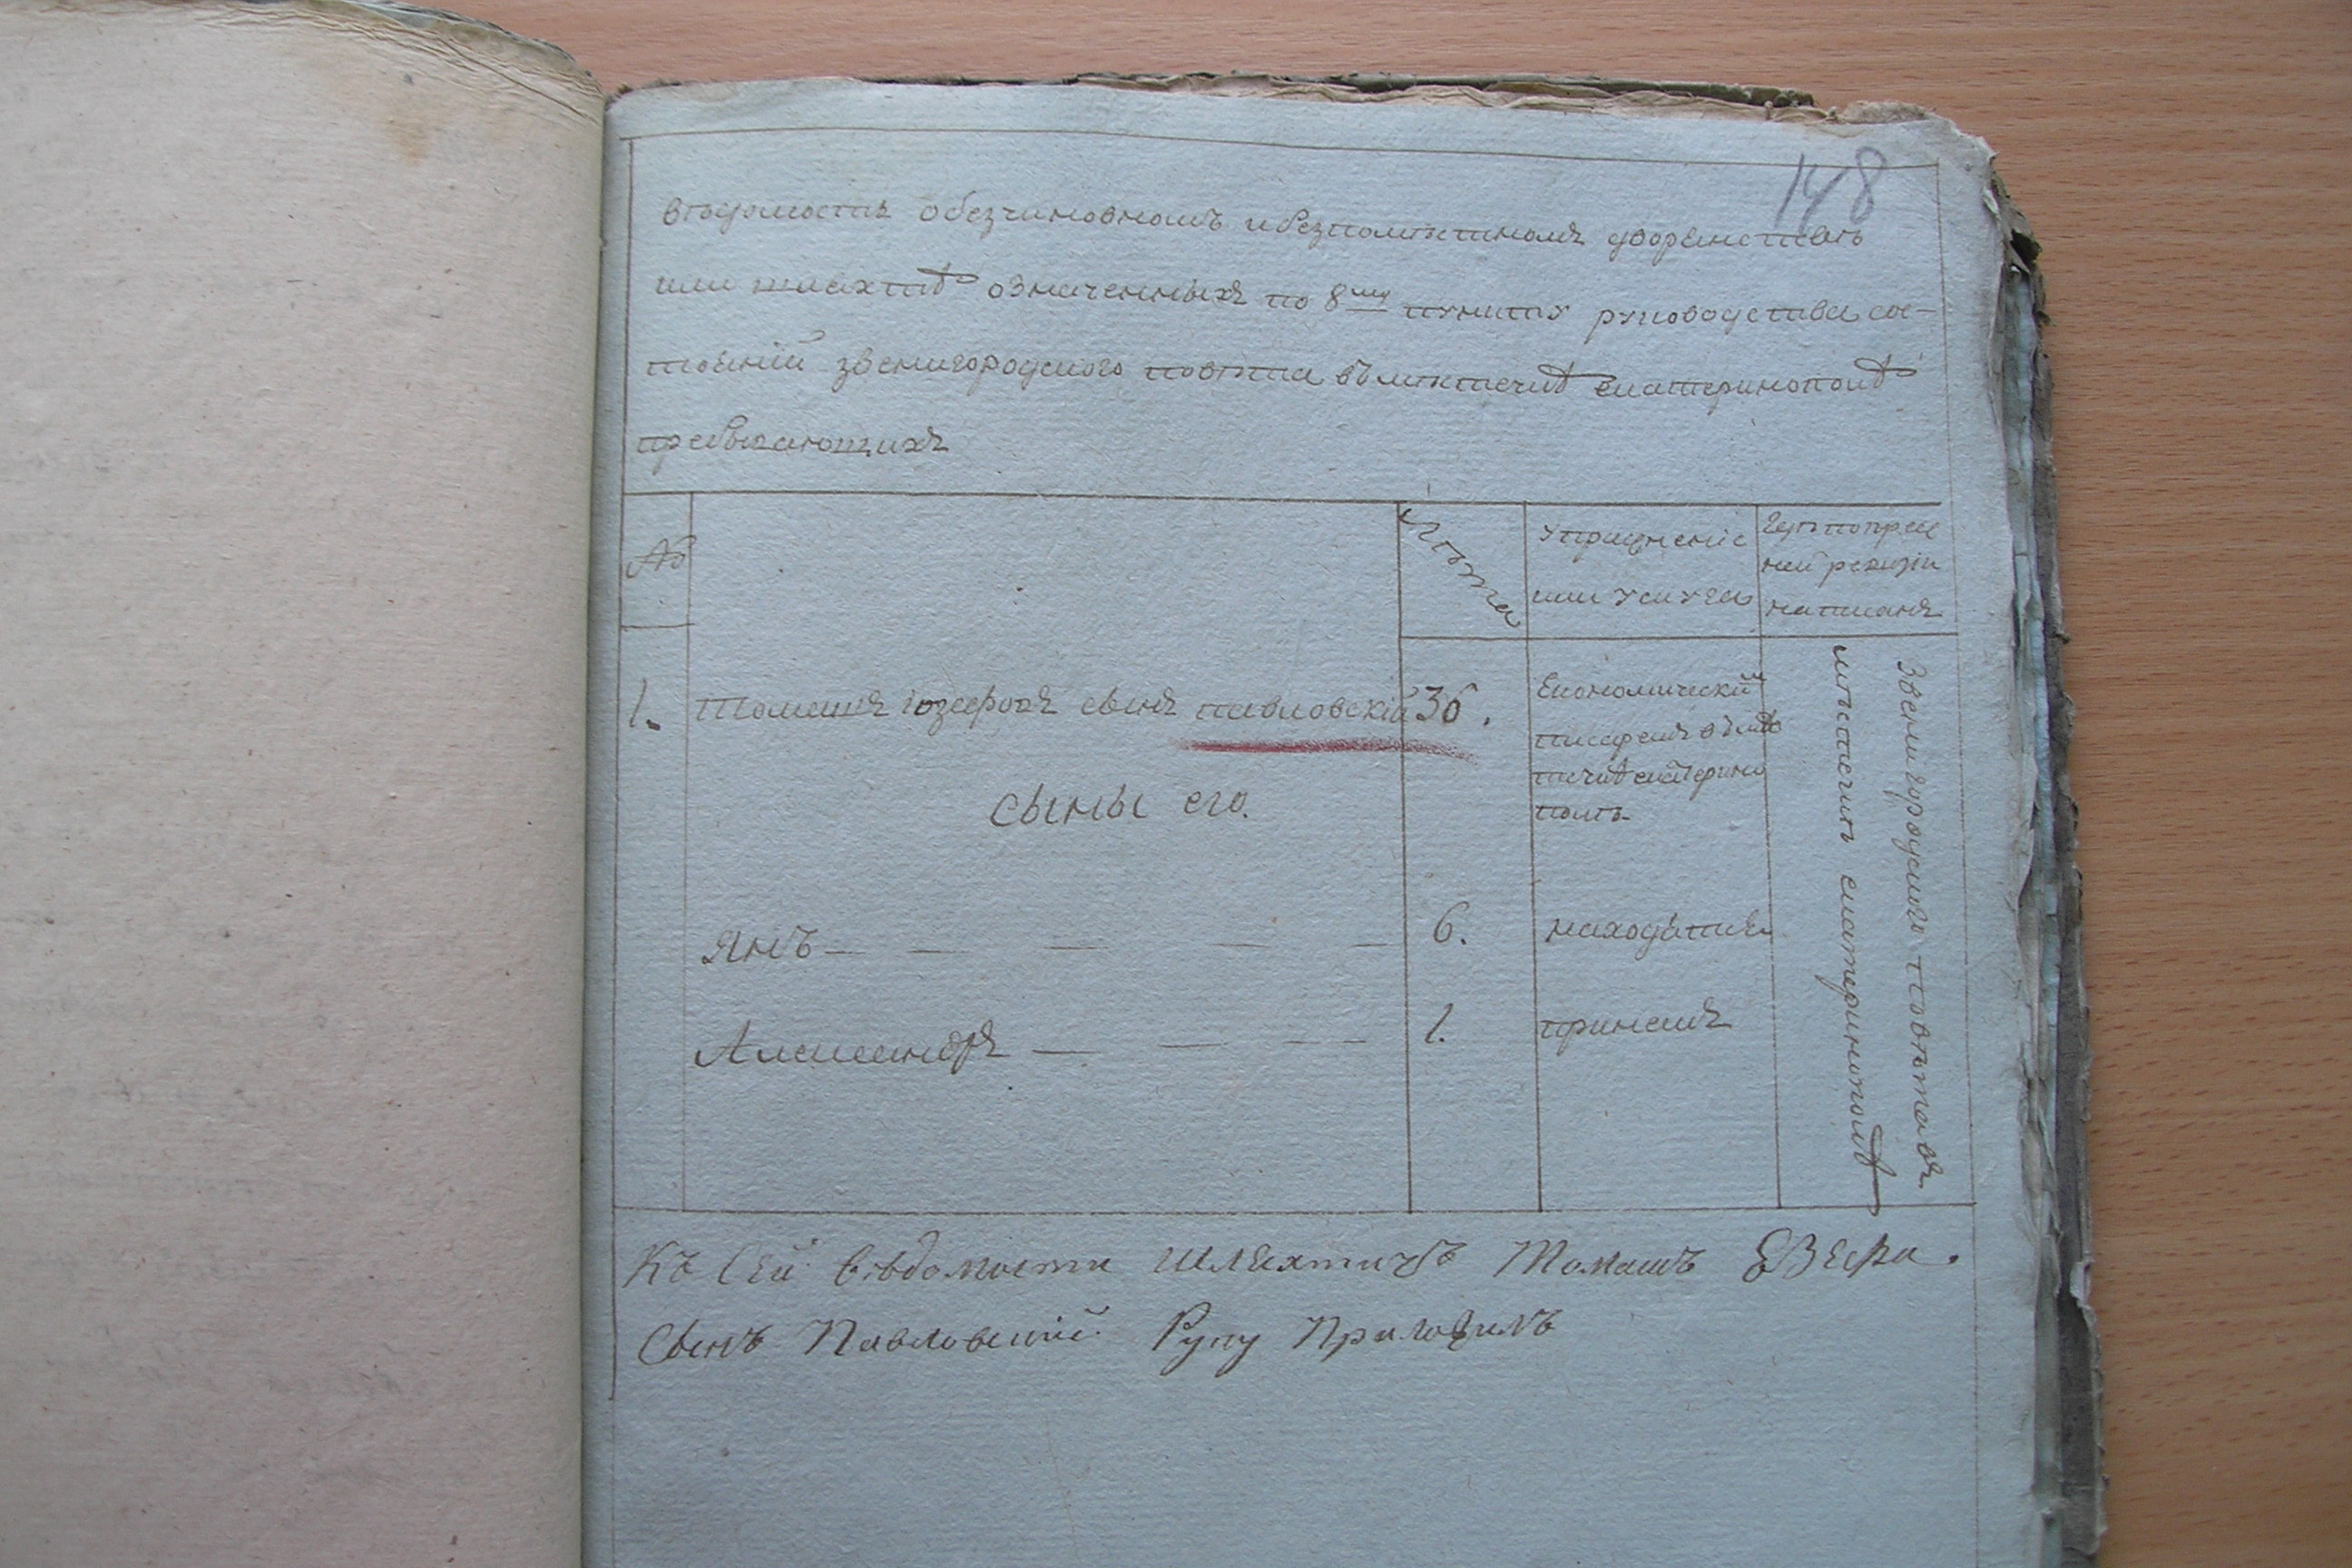 148
вѣдомость обезчиновномъ ибезпоместномъ дворянствѣ
или шляхтѣ означенныхъ по 8му пункту руководства сос-
тоянiй звенигородского повѣта въ местечкѣ екатеринополѣ
пребывающихъ
№
лѣта
Упражненiе
или услуга
Гдѣ попреж
ней ревизiи
написанъ
1. Томашъ iозефовъ сынъ павловскiй 36.
Економическiй
писаремъ въ мѣс
течкѣ екатерино
полѣ
Звенигородского повѣта въ
мѣстечкѣ екатеринополѣ
сыны его.
Янъ — — — — — 6. находятся
Александръ — — — — 1. принемъ
Къ Сей вѣдомости Шляхтичъ Томашъ ЕЗефа.
Сынъ Павловскiй Руку Приложилъ